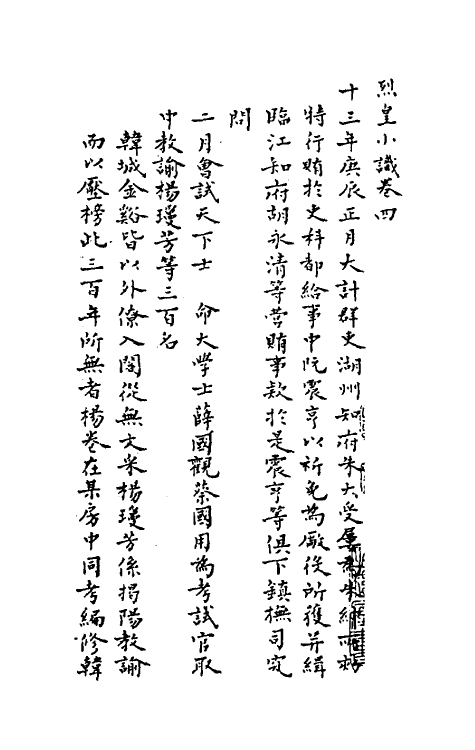 烈皇小識卷四
十三年庚辰正月大計群吏湖州知府朱大受
特行賄於吏科都給事中阮震亨以祈免為廠役所獲并緝
臨江知府胡永清等營賄事款於是震亨等俱下鎮撫司究
問
二月會試天下士　命大學士薛國觀蔡國用為考試官取
中教諭楊瓊芳等三百名
韓城金谿皆以外僚入閣從無文采楊瓊芳係揭陽教諭
而以壓榜此三百年所無者楊卷在某房中同考編修韓